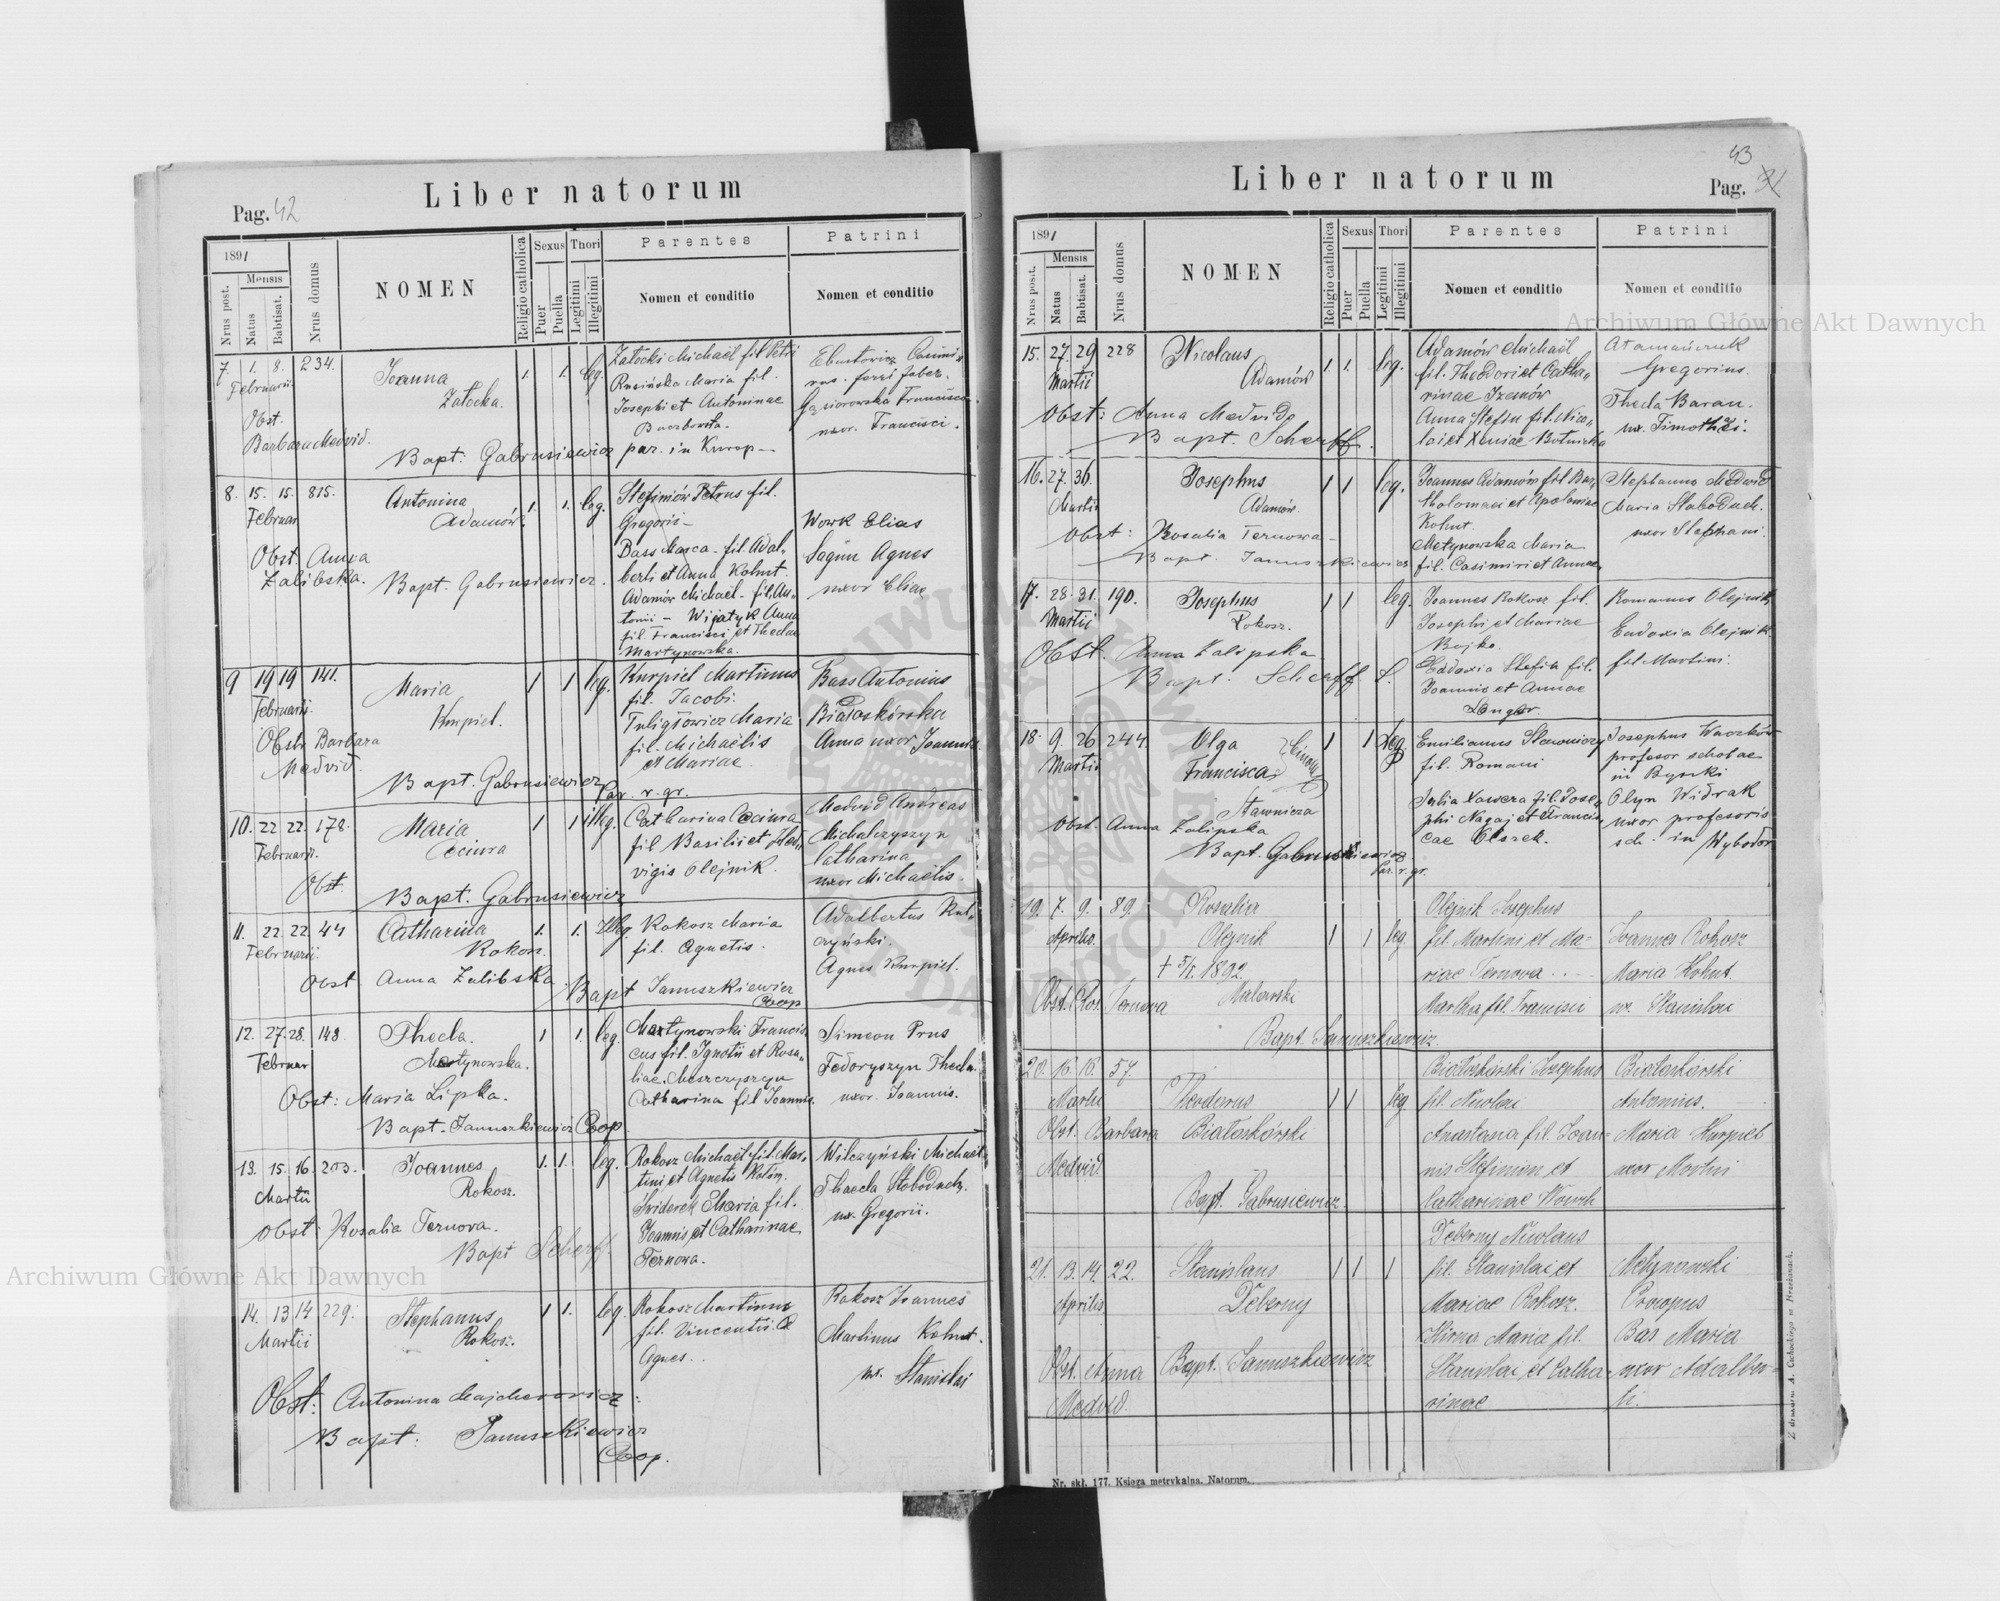 Liber natorum
Pag. 42
1891
Mensis
Nrus post.
Natus
Babtisat.
Nrus domus
NOMEN
Religio catholica
Sexus
Puer
Puella
Thori
Legitimi
Illegitimi
Parentes
Nomen et conditio
Patrini
Nomen et conditio
7. 1. 8. 234.
Februarii
Obst.
Barbara Medvid.
Joanna
Załocka.
1. 1. leg.
Bapt. Gabrusiewicz
Załocki Michaël fil. Petri
Rusińska Maria fil.
Josephi et Antoninae
par. in Kurop—
Gąsiorowska Francisca
uxor. Francisci.
8. 15. 15. 815.
Februar
Obst. Anna
Zalibska.
Antonina
Adamów.
1. 1. leg.
Bapt. Gabrusiewicz.
Stefiniów Petrus fil.
Gregorii—
Bass Marca - fil. Adal„
berti et Anna Kohut.
Adamów Michael - fil. An„
tonii - Wijatyk Anna
fil. Francisci et Theclae
Martynowska.
Wowk Elias
Sagun Agnes
uxor Eliae
9 19 19 141.
Februarii.
Obstr Barbara
Medvid.
Maria
Kurpiel.
1 1 leg.
Bapt. Gabrusiewicz
Par. r. gr.
Kurpiel Martinus
fil. Jacobi.
Tuligłowicz Maria
fil. Michaëlis
et Mariae.
Bass Antonius
Białoskórska
Anna uxor Joannis.
10. 22 22. 178.
Februarii.
Obst.
Maria
Ceciura
1 1 illeg.
Bapt. Gabrusiewicz
Catharina Ceciura
fil Basilii et Hed„
vigis Olejnik.
Medvid Andreas
Michalczyszyn
Catharina
uxor Michaëlis.
11. 22. 22. 44
Februarii.
Obst Anna Zalibska.
Catharina
Rokosz.
1. 1. Illeg.
Bapt Januszkiewicz
Coop
Rokosz Maria
fil. Agnetis.
Adalbertus Rut„
czyński.
Agnes Kurpiel.
12. 27. 28. 148.
Februar
Obst: Maria Lipka.
Thecla.
Martynowska.
1 1. leg.
Bapt. Januszkiewicz Coop.
Martynowski Francis
cus fil. Ignatii et Rosa„
liae. Meszczyszyn
Catharina fil Joannis.
Simeon Prus
Fedoryszyn Thecla.
uxor. Joannis.
13. 15. 16. 203.
Martii
Obst: Rosalia Ternova.
Joannes
Rokosz.
1. 1. leg.
Bapt Scherff.
Rokosz Michaël fil. Mar„
tini et Agnetis Kotów.
Sviderek Maria fil.
Joannis et Catharinae
Ternova.
Wilczyński Michaël
Thaecla Słoboduch.
ux. Gregorii.
14. 13 14 229.
Martii
Stephanus
Rokosz.
1 1. leg.
Rokosz Martinus
fil. Vincentii. &
Agnes..
Rokosz Joannes
Martinus Kohut.
ux. Stanislai
Obst: Antonina Majcherowicz:
Bapt: Januszkiewicz
Coop.
Liber natorum
43
Pag. 31
1891
Mensis
Nrus post.
Natus
Babtisat.
Nrus domus
NOMEN
Religio catholica
Sexus
Puer
Puella
Thori
Legitimi
Illegitimi
Parentes
Nomen et conditio
Patrini
Nomen et conditio
15. 27. 29 228
Martii
Nicolaus
Adamów
1 1. leg.
Obst: Anna Medvid
Bapt. Scherff.
Adamów Michaël
fil. Theodori et Catha„
rinae Izemów
Anna Stefin fil. Nico„
lai et Xeniae Botwicka
Atamańczuk
Gregorius.
Thecla Baran.
ux. Timothëi.
16. 27. 30.
Martii
Josephus
Adamów.
1 1 leg.
Obst: Rosalia Ternowa-
Bapt. Januszkiewicz
Joannes Adamów fil Bar„
tholomaei et Apoloniae
Kohut.
Metynowska Maria
fil. Casimiri et Annae
Stephanus Medwid
Maria Słaboduch.
uxor Stephani.
17. 28. 31. 190.
Martii
Josephus
Rokosz.
1 1 leg.
Obst. Anna Zalipska
Bapt. Scherff.
Joannes Rokosz fil.
Josephi et Mariae
Bojko.
Eudoxia Stefin fil.
Joannis et Annae
Langer.
Romanus Olejnik
Eudoxia Olejnik
fil Martini.
18. 9. 26 244.
Martii
Olga
Francisca
Stawnicza
1 1 leg.
Obst. Anna Zalipska
Bapt. Gabrusiewicz
Par. r. gr.
Emilianus Sławniczy
fil. Romani
Julia Xawera fil. Jose„
phi Nagaj et Francis„
cae Olszek.
Josephus Waczków
profesor scholae
in Byszki
Olyn Widrak
uxor profesoris
sch. in Wybodów
19. 7. 9. 89.
Aprilis.
Rosalia
Olejnik
† 5/I. 1892.
1 1 leg.
Obst. Ros. Ternova
Malarski
Bapt. Januszkiewicz
Olejnik Josephus
fil. Martini et Ma-
riae Ternova.
Martha fil. Francisci
Joannes Rokosz
Maria Kohut.
ux. Stanislai
20. 16. 16. 57.
Martii
Obst. Barbara
Medvid
Theodorus
Białoskórski
1 1 leg.
Bapt. Gabrusiewicz.
Białoskórski Josephus
fil. Nicolai
Anastasia fil. Joan-
nis Stefiniów et
Catharinae Wowk
Białoskórski
Antonius.
Maria Kurpiel
uxor Martini
21. 13. 14. 22.
Aprilis
Obst. Anna
Medvid.
Stanislaus
Deberny
1 1 1
Bapt. Januszkiewicz
Deberny Nicolaus
fil. Stanislai et
Mariae Rokosz.
Hirna Maria fil.
Stanislai et Catha-
rinae
Metynowski
Procopus
Bas Maria
uxor Adalber-
ti.
Nr. skł. 177. Księga metrykalna. Natorum.
Archiwum Główne Akt Dawnych
Archiwum Główne Akt Dawnych